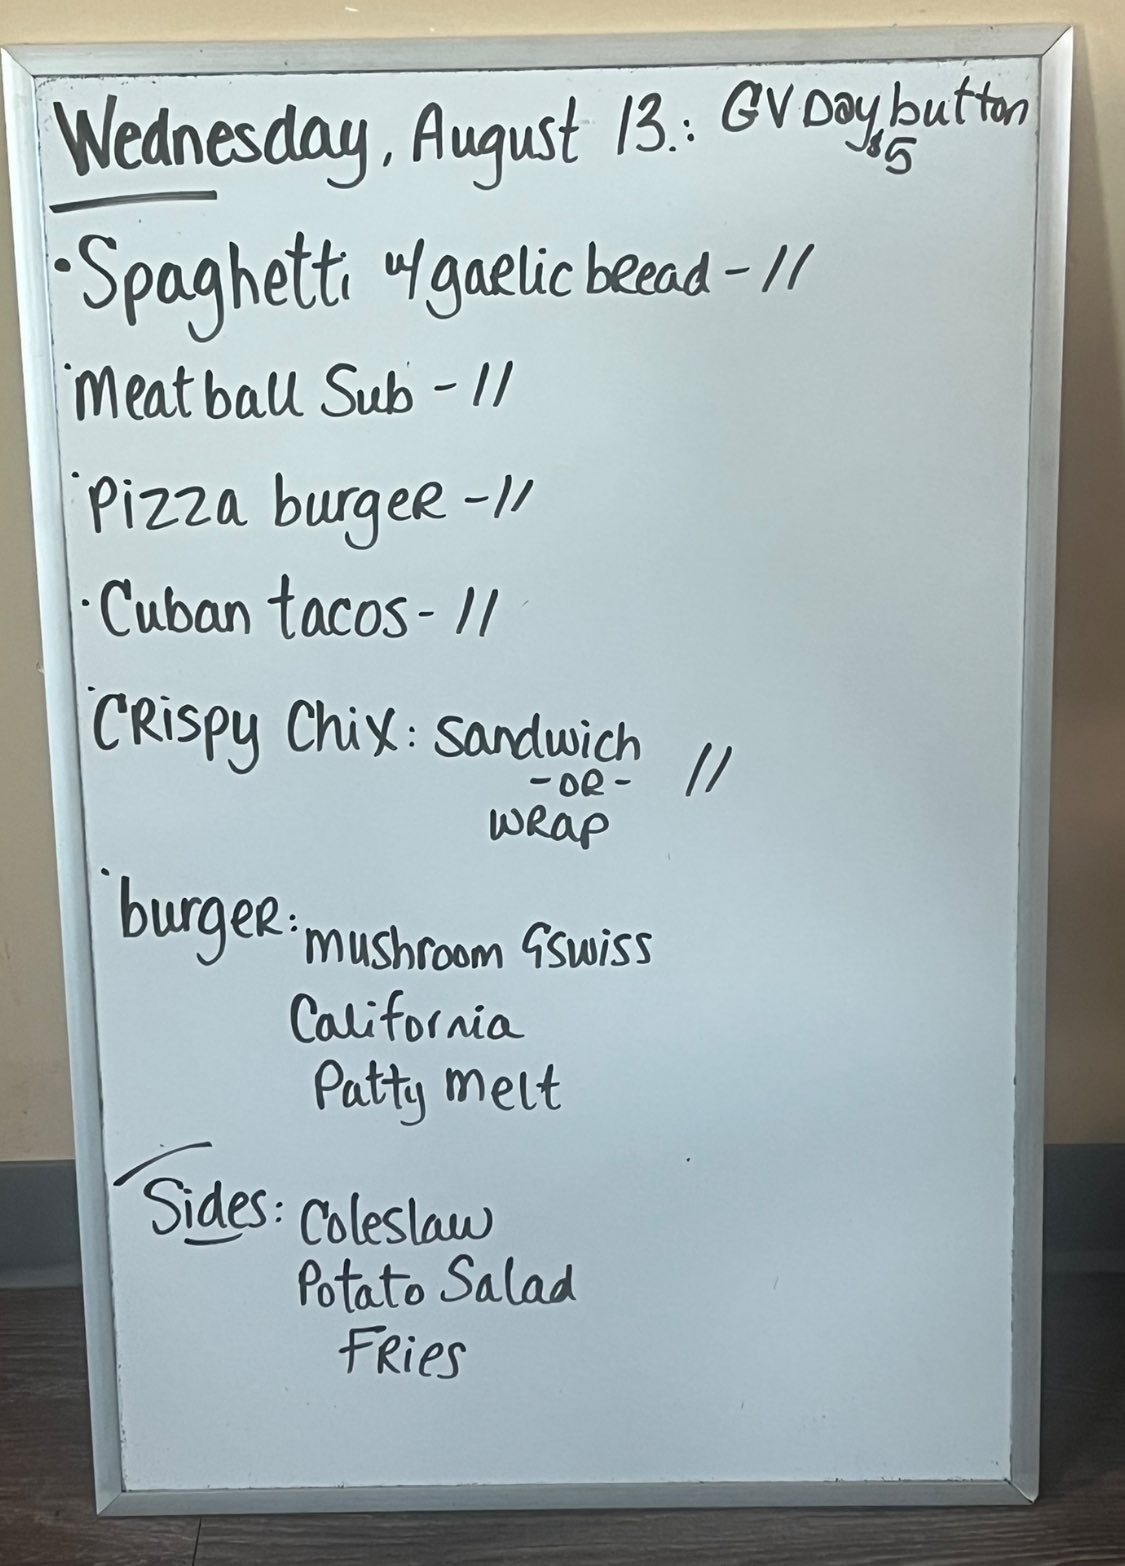 Wednesday, August 13.: GV Day button
$5
• Spaghetti w/ garlic bread - 11
• Meatball Sub - 11
• Pizza burger - 11
• Cuban tacos - 11
• Crispy Chix: Sandwich 11
- OR -
WRap
• burger: mushroom & Swiss
California
Patty melt
Sides: Coleslaw
Potato Salad
Fries